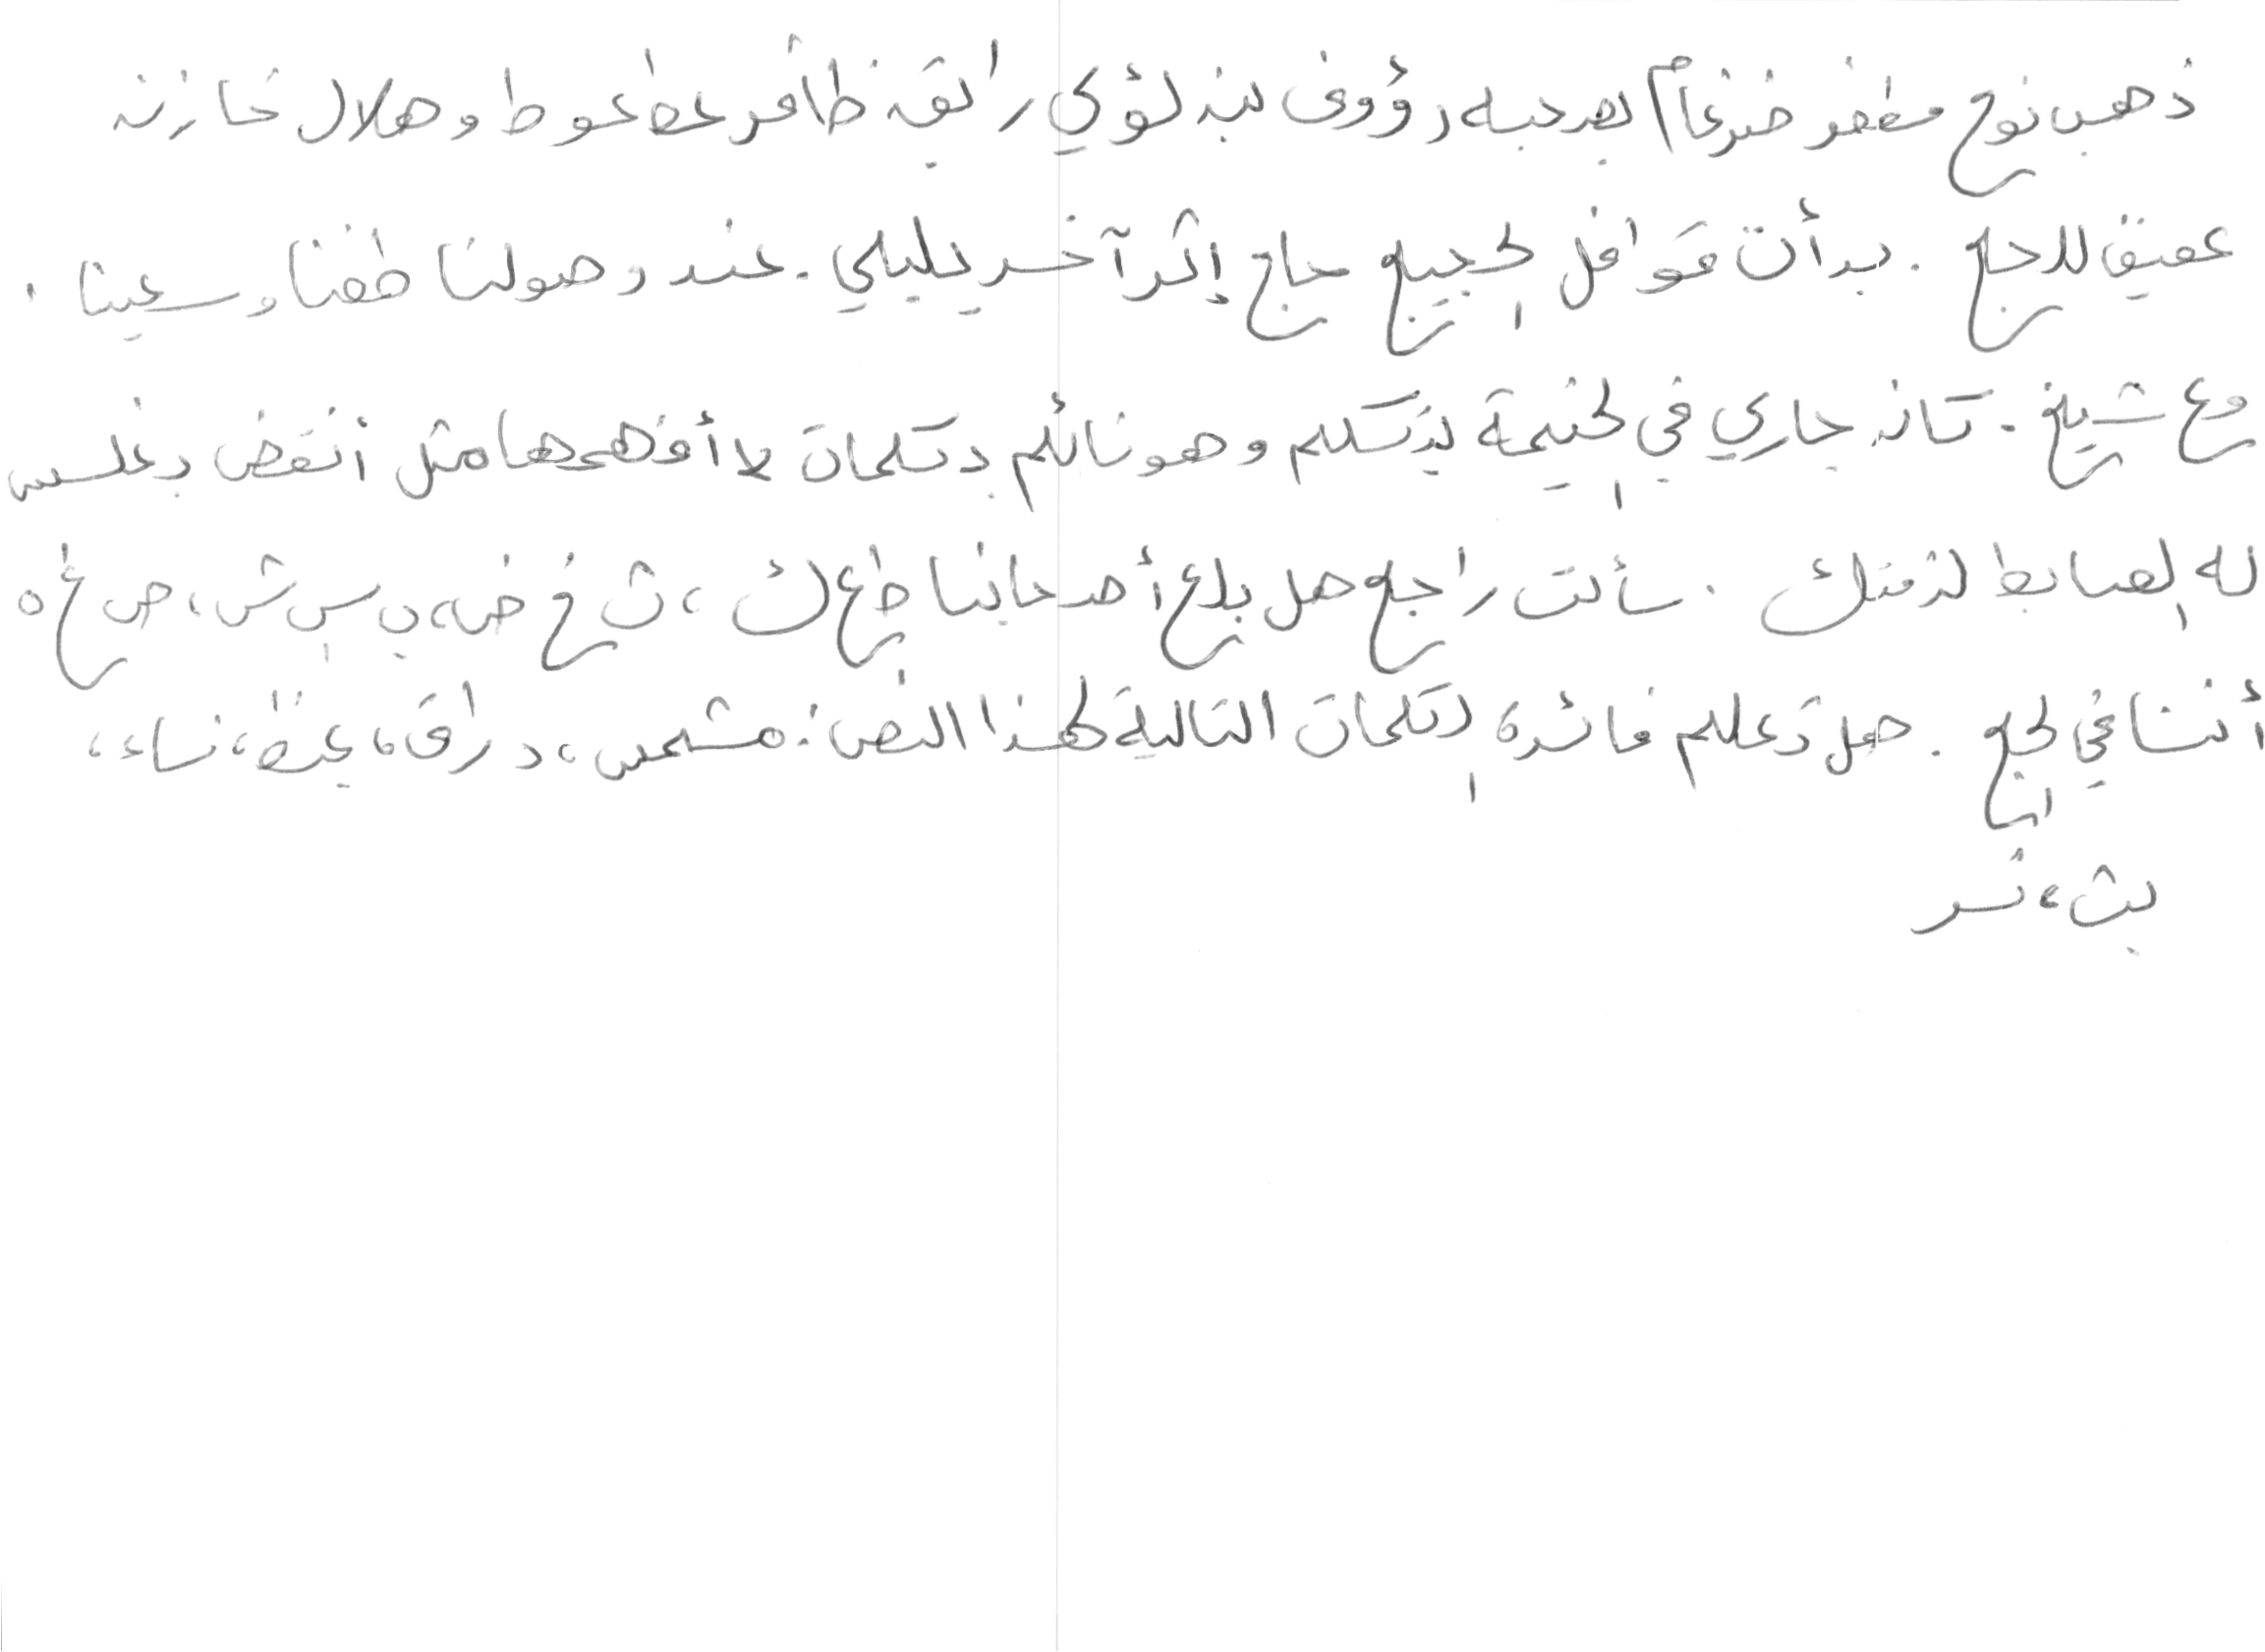 ذهب نوح مظفر ضرغام بصحبه رؤوف بن لؤي رايق ظافر عطعوط وهلال خازن
عفيق للحج . بدأت قوافل الحجيج حاج إثر آخر يليلي . عند وصولنا طفنا وسعينا ،
مع شيخ . كان جاري في الخيمة يتكلم وهو نائم بكلمات لا أفهمها مثل أنقض بغلس
له الضابط لذقنك . سألت راجح هل بلغ أصحابنا ظ ع ك ، ث خ ض ، ب س ش ، ص غ ه
أننا في الحج . هل تعلم فائدة الكلمات التالية لهذا النص : مشمس ، دراق ، غيظ ، ناء ،
بث ، نسر